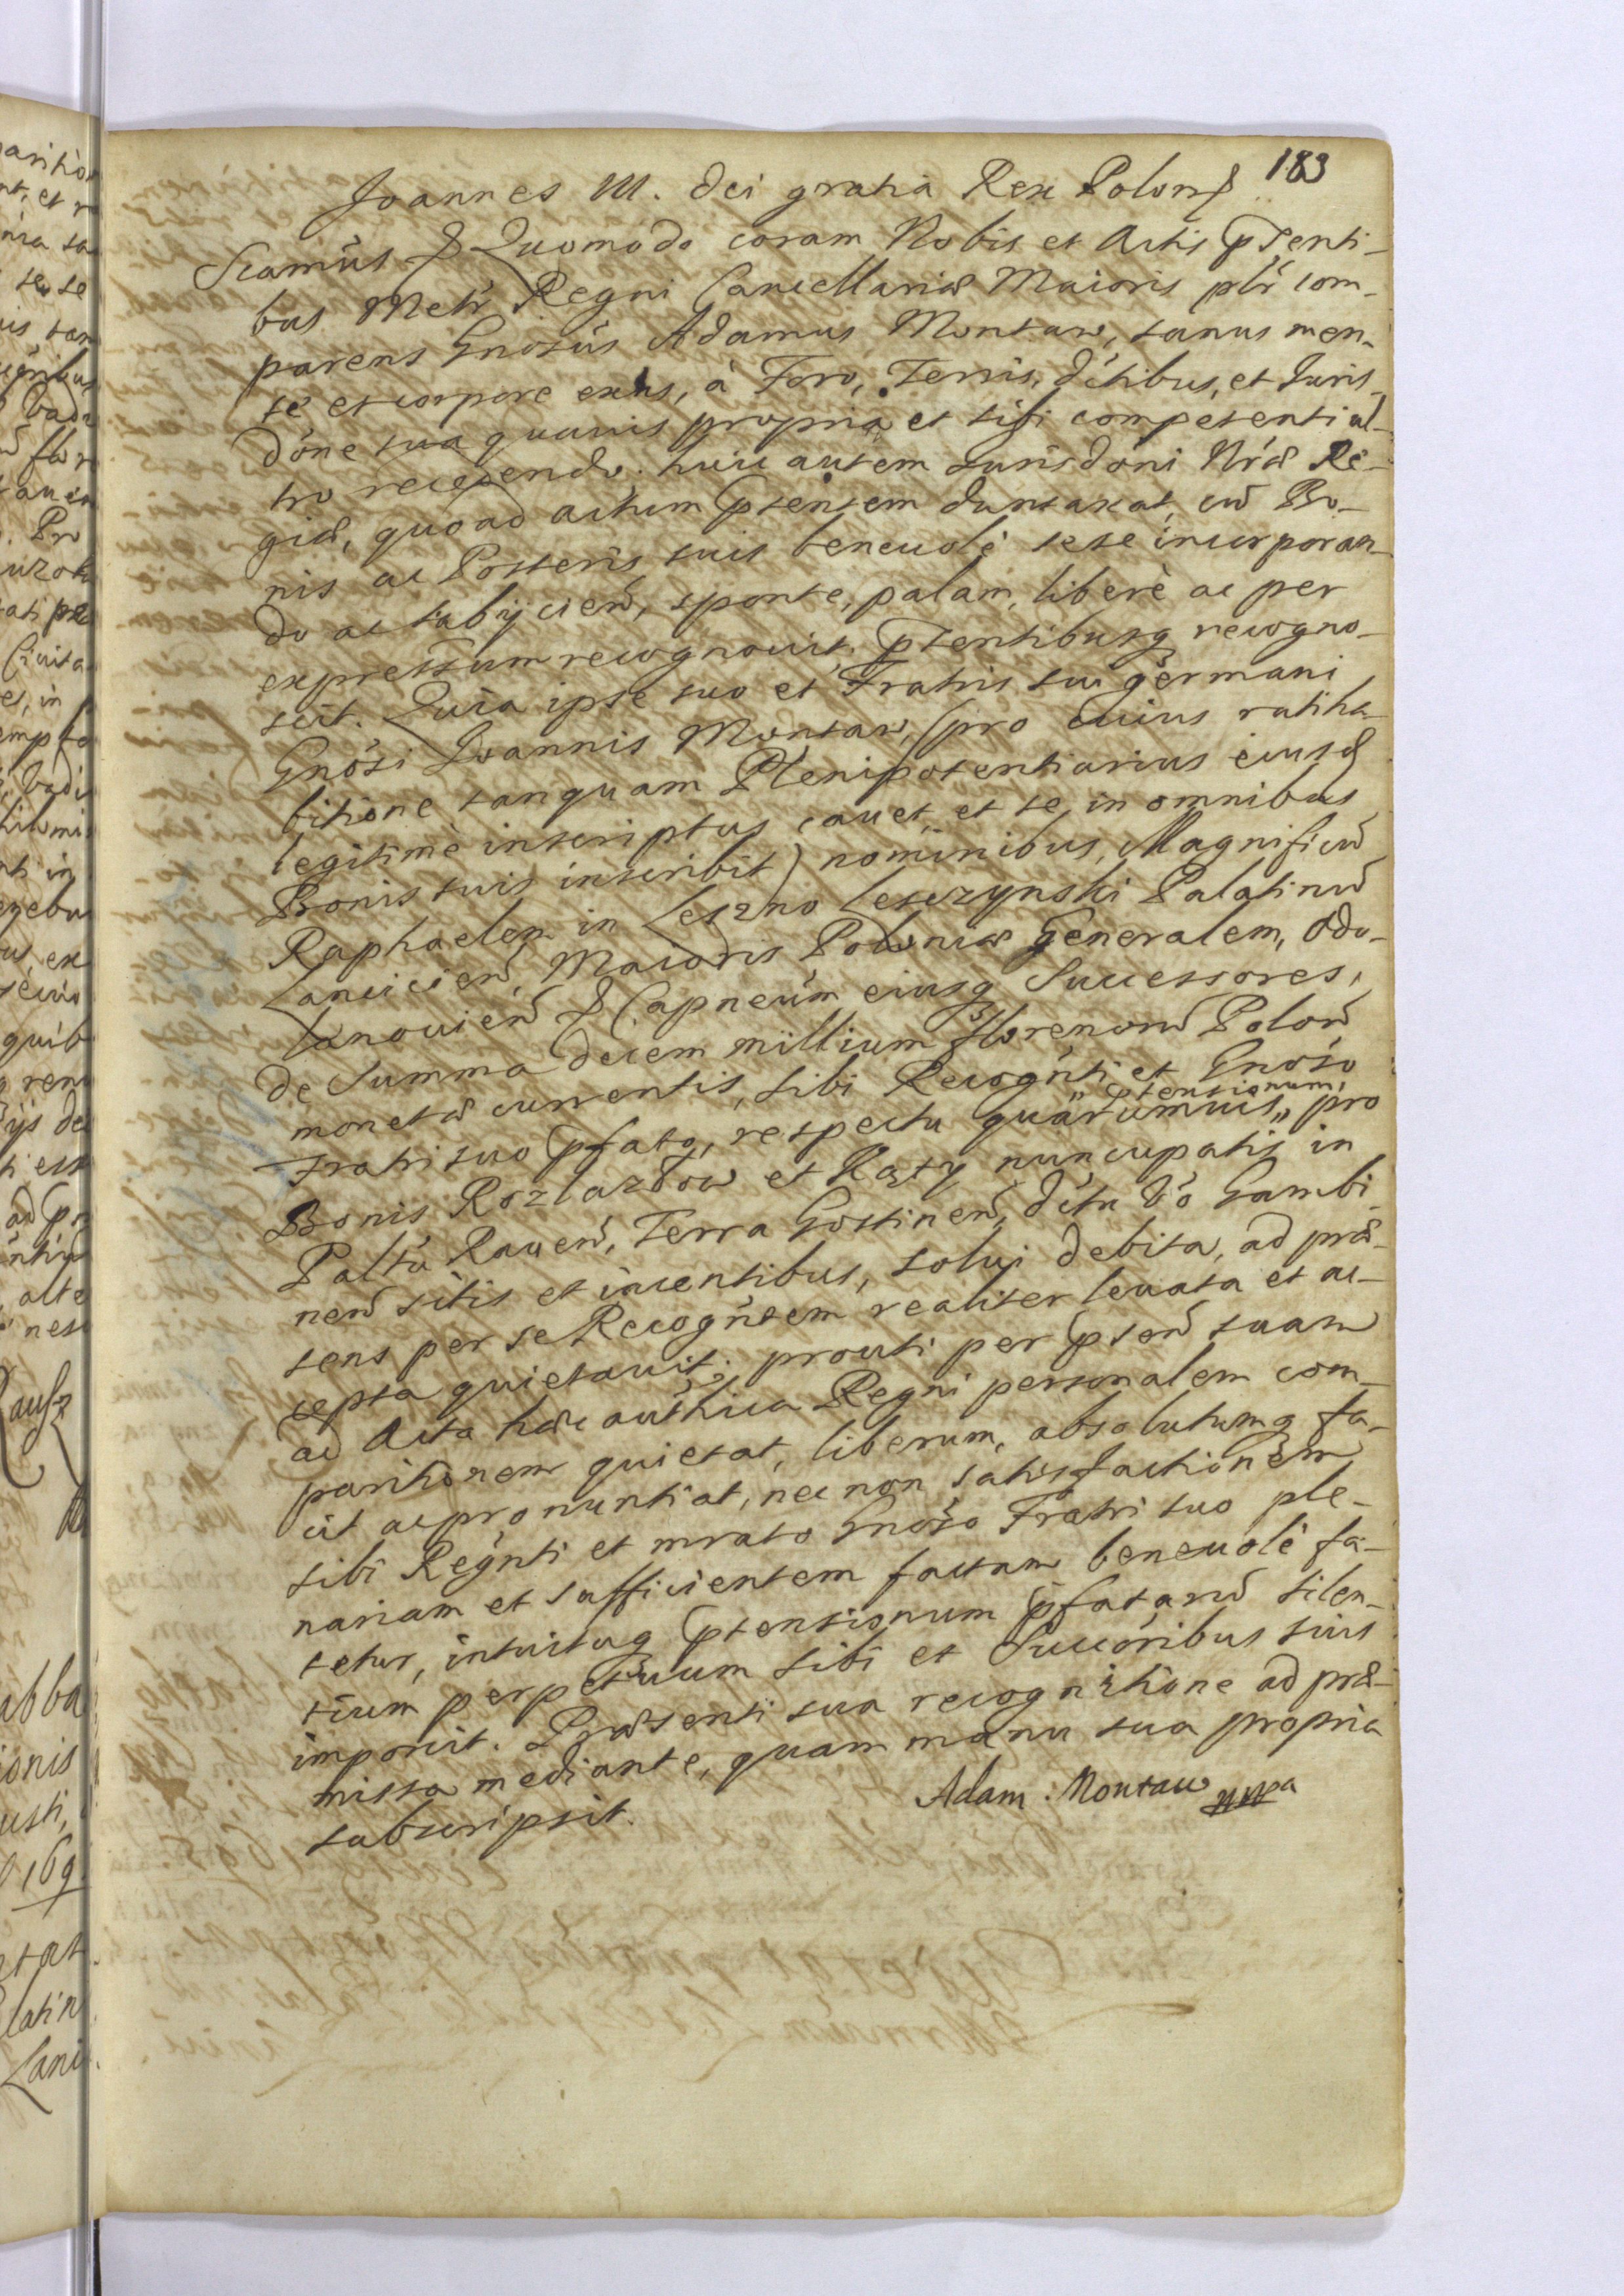 183
Joannes III. Dei gratia Rex Polon &
Sciamus & Quomodo coram Nobis et Actis pſenti-
bus Metr Regni Cancellariæ Maioris plr com-
parens Gnosus Adamus Montaw, sanus men-
te et corpore exns, à Foro, Terris, dctibus, et Juris-
done sua quavis propria et sibi competenti ul-
tro recedendo. huic autem Jurisdoni Nræ Re-
giæ, quoad actum pſentem duntaxat, cu Bo-
nis ac Posteris suis beneuolè sese incorporan-
do ac subijcien, sponte, palam, liberè ac per
expressum recognouit, pſentibusq recogno-
scit. Quia ipse suo et Fratris sui germani
Gnosi Joannis Montaw, (pro cuius ratiha-
bitione tanquam Plenipotentiarius eiusd
legitimè inscriptus cauet, et se in omnibus
Bonis suis inscribit) nominibus, Magnificu
Raphaelem in Leszno Leszczynski Palatinu
Lancicien, Maioris Poloniæ Generalem, Odo-
lanouien & Capneum eiusq Successores,
de Summa decem millium florenoru Polon
monetæ currentis, sibi Recognti et Gnoso
Fratri suo pfato, respectu quarumuis ptensionum, pro
Bonis Rozlazłow et Kąty nuncupatis in
Paltu Rauen, Terra Gostinen, dctu Vo Gambi-
nen sitis et iacentibus, solui debita, ad præ-
sens per se Recogntem realiter leuata et ac-
cepta quietauit; prouti per pſen suam
ad Acta hæc authica Regni personalem com-
paritionem quietat, liberum, absolutumq fa-
cit ac pronuntiat, nec non satisfactionem
sibi Regnti et mrato Gnoso Fratri suo ple-
nariam et sufficientem factam beneuolè fa-
tetur, intuituq ptensionum pfataru silen-
tium perpetuum sibi et Succoribus suis
imponit. Præsenti sua recognitione ad præ-
missa mediante, quam manu sua propria
subscripsit.
Adam Montaw mpa